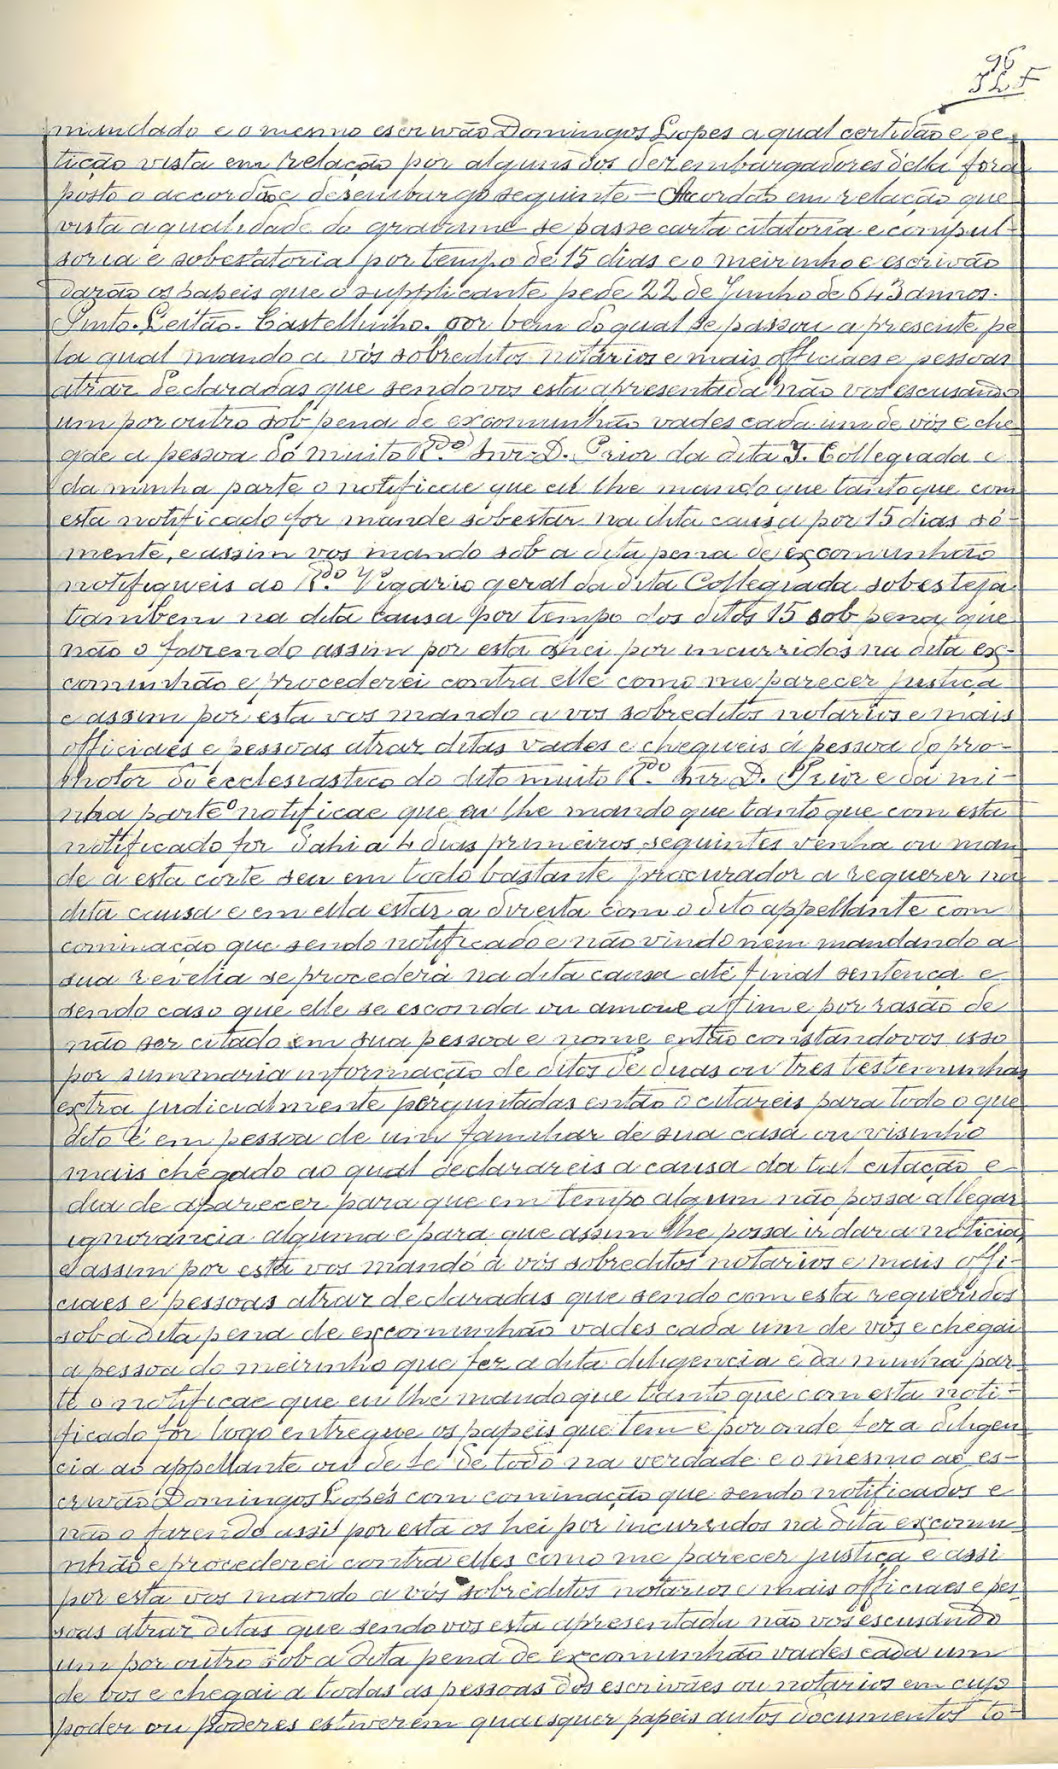 96
mandado e o mesmo escrivão Domingos Lopes a qual certidão e pe-
tição vista em relação por alguns dos dezembargadores della fora
posto o accordão e desembargo seguinte — Acordão em relação que
vista a qualidade do gravame se passe carta citatoria e compul-
soria e sobestatoria por tempo de 15 dias e o meirinho e escrivão
darão os papeis que o supplicante pede 22 de Junho de 643 annos.
Pinto. Leitão. Castellinho. por bem do qual se passou a presente pe
la qual mando a vós sobreditos notarios e mais officiaes e pessoas
atraz declaradas que sendovos esta apresentada não vos escusando
um por outro sob pena de excomunhão vades cada um de vós e che
gae a pessoa do muito R.do Snr. D. Prior da dita I. Collegiada e
da minha parte o notificae que eu lhe mando que tanto que com
esta notificado for mande sobestar na dita causa por 15 dias só-
mente, e assim vos mando sob a dita pena de excomunhão
notifiqueis ao R.do Vigario geral da dita Collegiada sobesteja
tambem na dita causa por tempo dos ditos 15 sob pena que
não o fazendo assim por esta o hei por incurridos na dita ex-
comunhão e procederei contra elle como me parecer justiça
e assim por esta vos mando a vos sobreditos notarios e mais
officiaes e pessoas atraz ditas vades e chegueis á pessoa do pro-
motor do ecclesiastico do dito muito R.do Snr D. Prior e da mi-
nha parte o notificae que eu lhe mando que tanto que com esta
notificado for dahi a 4 dias primeiros seguintes venha ou man
de a esta corte seu em todo bastante procurador a requerer na
dita causa e em ella estar a direita com o dito appellante com
cominação que sendo notificado e não vindo nem mandando a
sua revelia se procederá na dita causa até final sentença e
sendo caso que elle se esconda ou amoue affim e por rasão de
não ser citado em sua pessoa e nome então constandovos isso
por summaria informação de ditos de duas ou tres testemunhas
extra judicialmente perguntadas então o citareis para todo o que
dito é em pessoa de um familiar de sua casa ou visinho
mais chegado ao qual declarareis a causa da tal citação e
dia de aparecer para que em tempo algum não possa allegar
ignorancia alguma e para que assim lhe possa ir dar a noticia
e assim por esta vos mando á vós sobreditos notarios e mais offi-
ciaes e pessoas atraz declaradas que sendo com esta requeridos
sob a dita pena de excomunhão vades cada um de vós e chegai
a pessoa do meirinho que fez a dita diligencia e da minha par-
te o notificae que eu lhe mando que tanto que com esta noti-
ficado for logo entregue os papeis que tem e por onde fez a diligen
cia ao appellante ou dê fé de todo na verdade e o mesmo ao es-
crivão Domingos Lopes com cominação que sendo notificados e
não o fazendo assi por esta os hei por incurridos na dita excomu-
nhão e procederei contra elles como me parecer justiça e assi
por esta vos mando a vós sobreditos notarios e mais officiaes e pes-
soas atraz ditas que sendo vos esta apresentada não vos escusando
um por outro sob a dita pena de excomunhão vades cada um
de vos e chegai a todas as pessoas dos escrivães ou notarios em cujo
poder ou poderes estiverem quaesquer papeis autos documentos to-